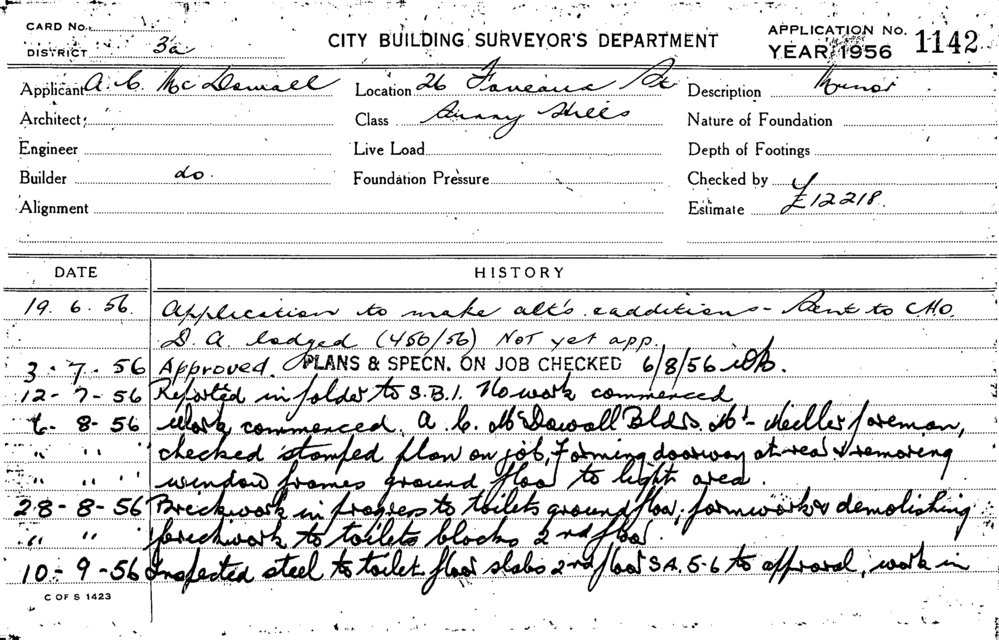 CARD No.
DISTRICT 3a
CITY BUILDING SURVEYOR'S DEPARTMENT
APPLICATION No. 1142
YEAR 1956
Applicant A. C. McDowall
Location 26 Foveaux St
Description Minor
Architect
Class Surry Hills
Nature of Foundation
Engineer
Live Load
Depth of Footings
Builder do.
Foundation Pressure
Checked by
Alignment
Estimate £12218.
DATE HISTORY
19. 6. 56. Application to make alt's & additions - Sent to C.H.O.
D.A. lodged (450/56) Not yet app.
3 - 7 - 56 Approved. PLANS & SPECN. ON JOB CHECKED 6/8/56
12 - 7 - 56 Reported in folder to S.B.I. No work commenced
6 - 8 - 56 Work commenced. A. C. McDowall Bldrs. Mr Meiller foreman,
" " " checked stamped plan on job, Forming doorway at rear & removing
" " " window frames ground floor to light area.
28 - 8 - 56 Brickwork in progress to toilets ground floor, formwork & demolishing
" " " brickwork to toilets blocks 2nd floor.
10 - 9 - 56 Inspected steel to toilet floor slabs 2nd floor S.A. 5-6 to approval, work in
C OF S 1423